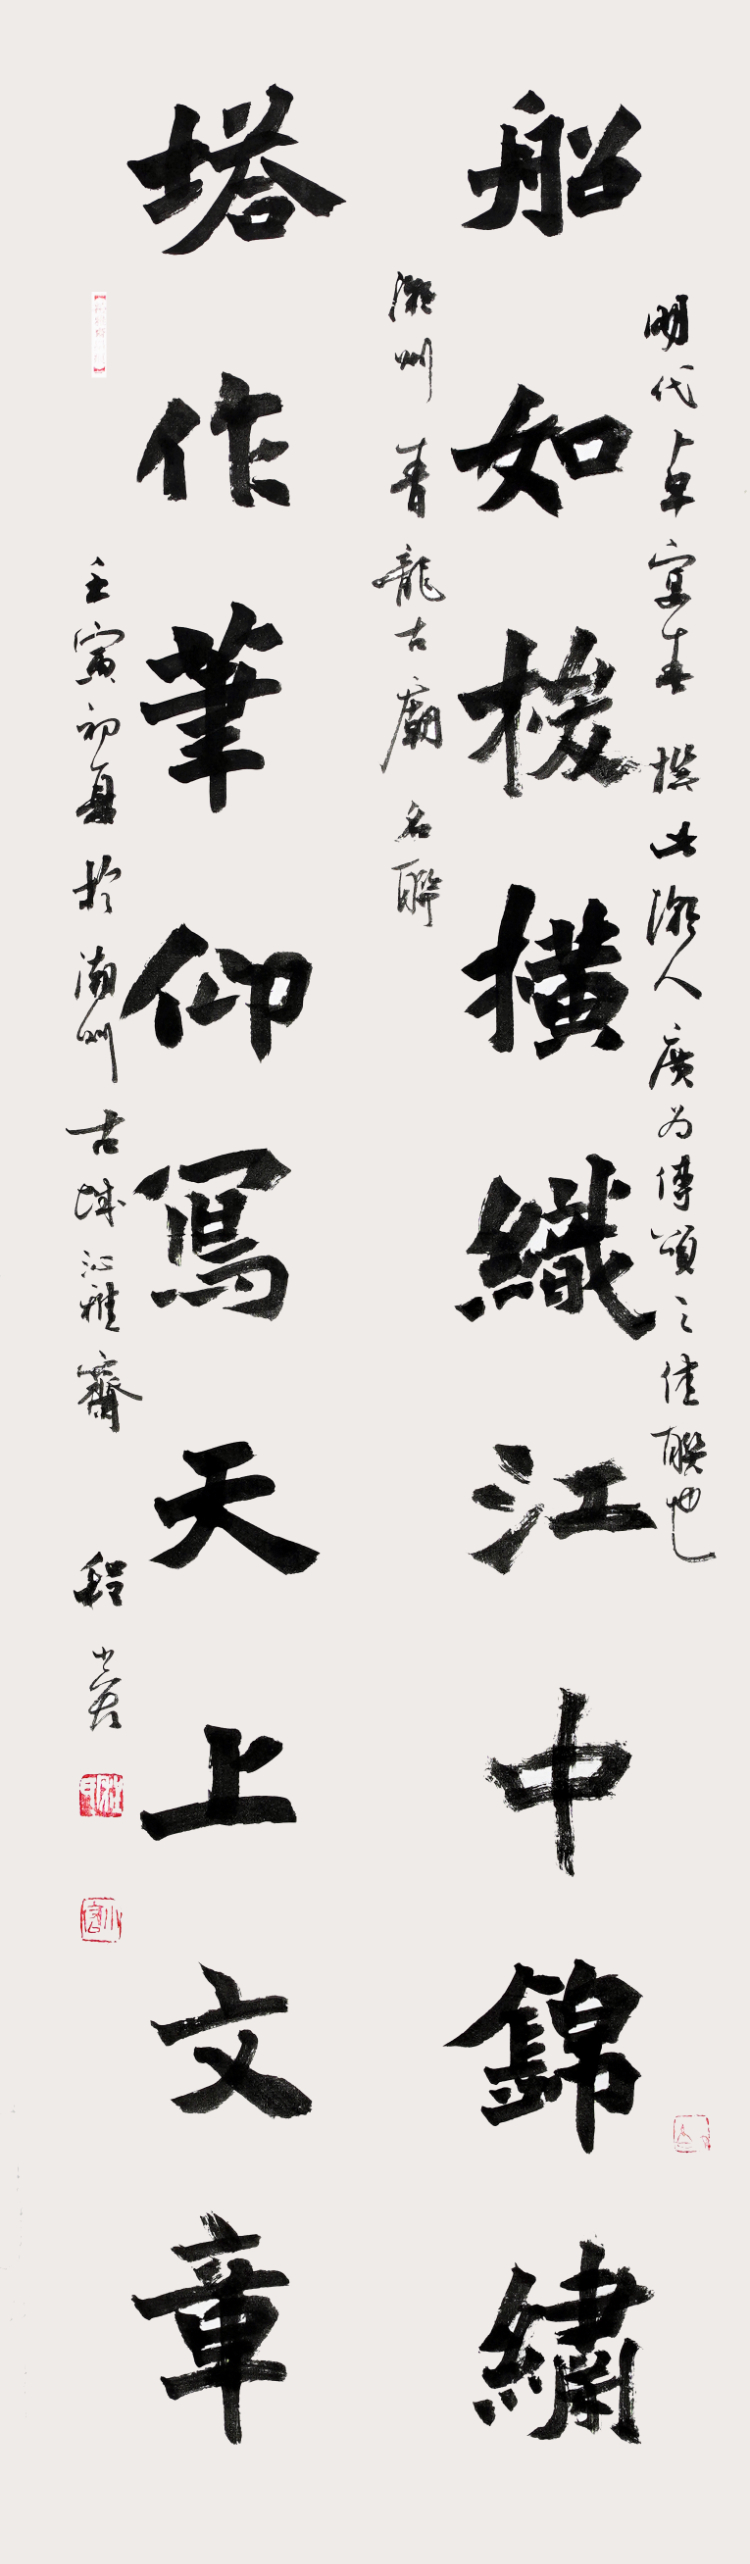 明代卓宴春撰此潮人廣为傳頌之佳聯也
船如梭橫織江中錦繡
潮州青龍古廟名聯
塔作筆仰寫天上文章
壬寅初夏於潮州古城沁雅齋 程小